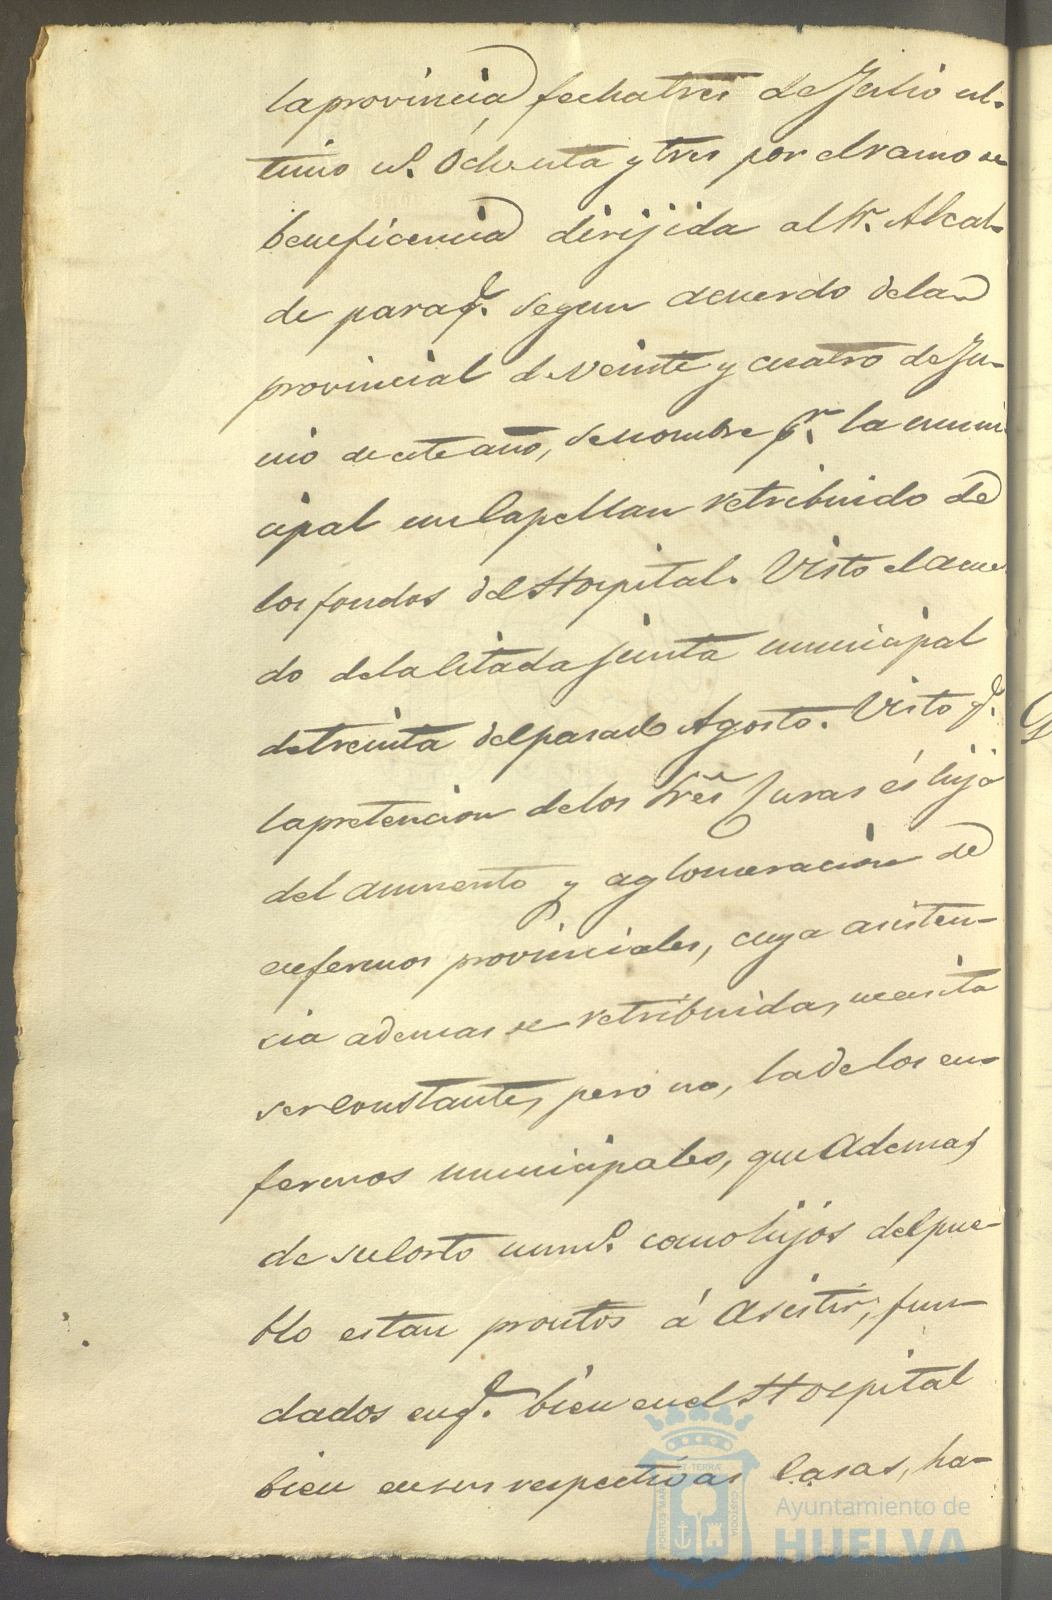 la provincia fecha tres de Julio ul-
timo nº. Ochenta y tres por el ramo de
beneficencia dirijida al Sr. Alcal-
de para q. segun acuerdo dela
provincial de veinte y cuatro de Ju-
nio de este año, se nombre pr. la muni
cipal un Capellan retribuido de
los fondos del Hospital. Visto el acuer
do dela Citada junta municipal
de treinta del pasado Agosto. Visto q.
la pretencion de los Sres Curas és hija
del aumento y aglomeracion de
enfermos provinciales, cuya asisten-
cia ademas de retribuida, necesita
ser constante, pero no, la de los en-
fermos municipales, que Ademas
de su corto numº. como hijos del pue-
blo estan prontos á Asistir, fun-
dados en q. bien en el Hospital
bien en sus respectivas Casas, ha-
PORTUS MARIS
ET TERRÆ
CUSTODIA
Ayuntamiento de
HUELVA